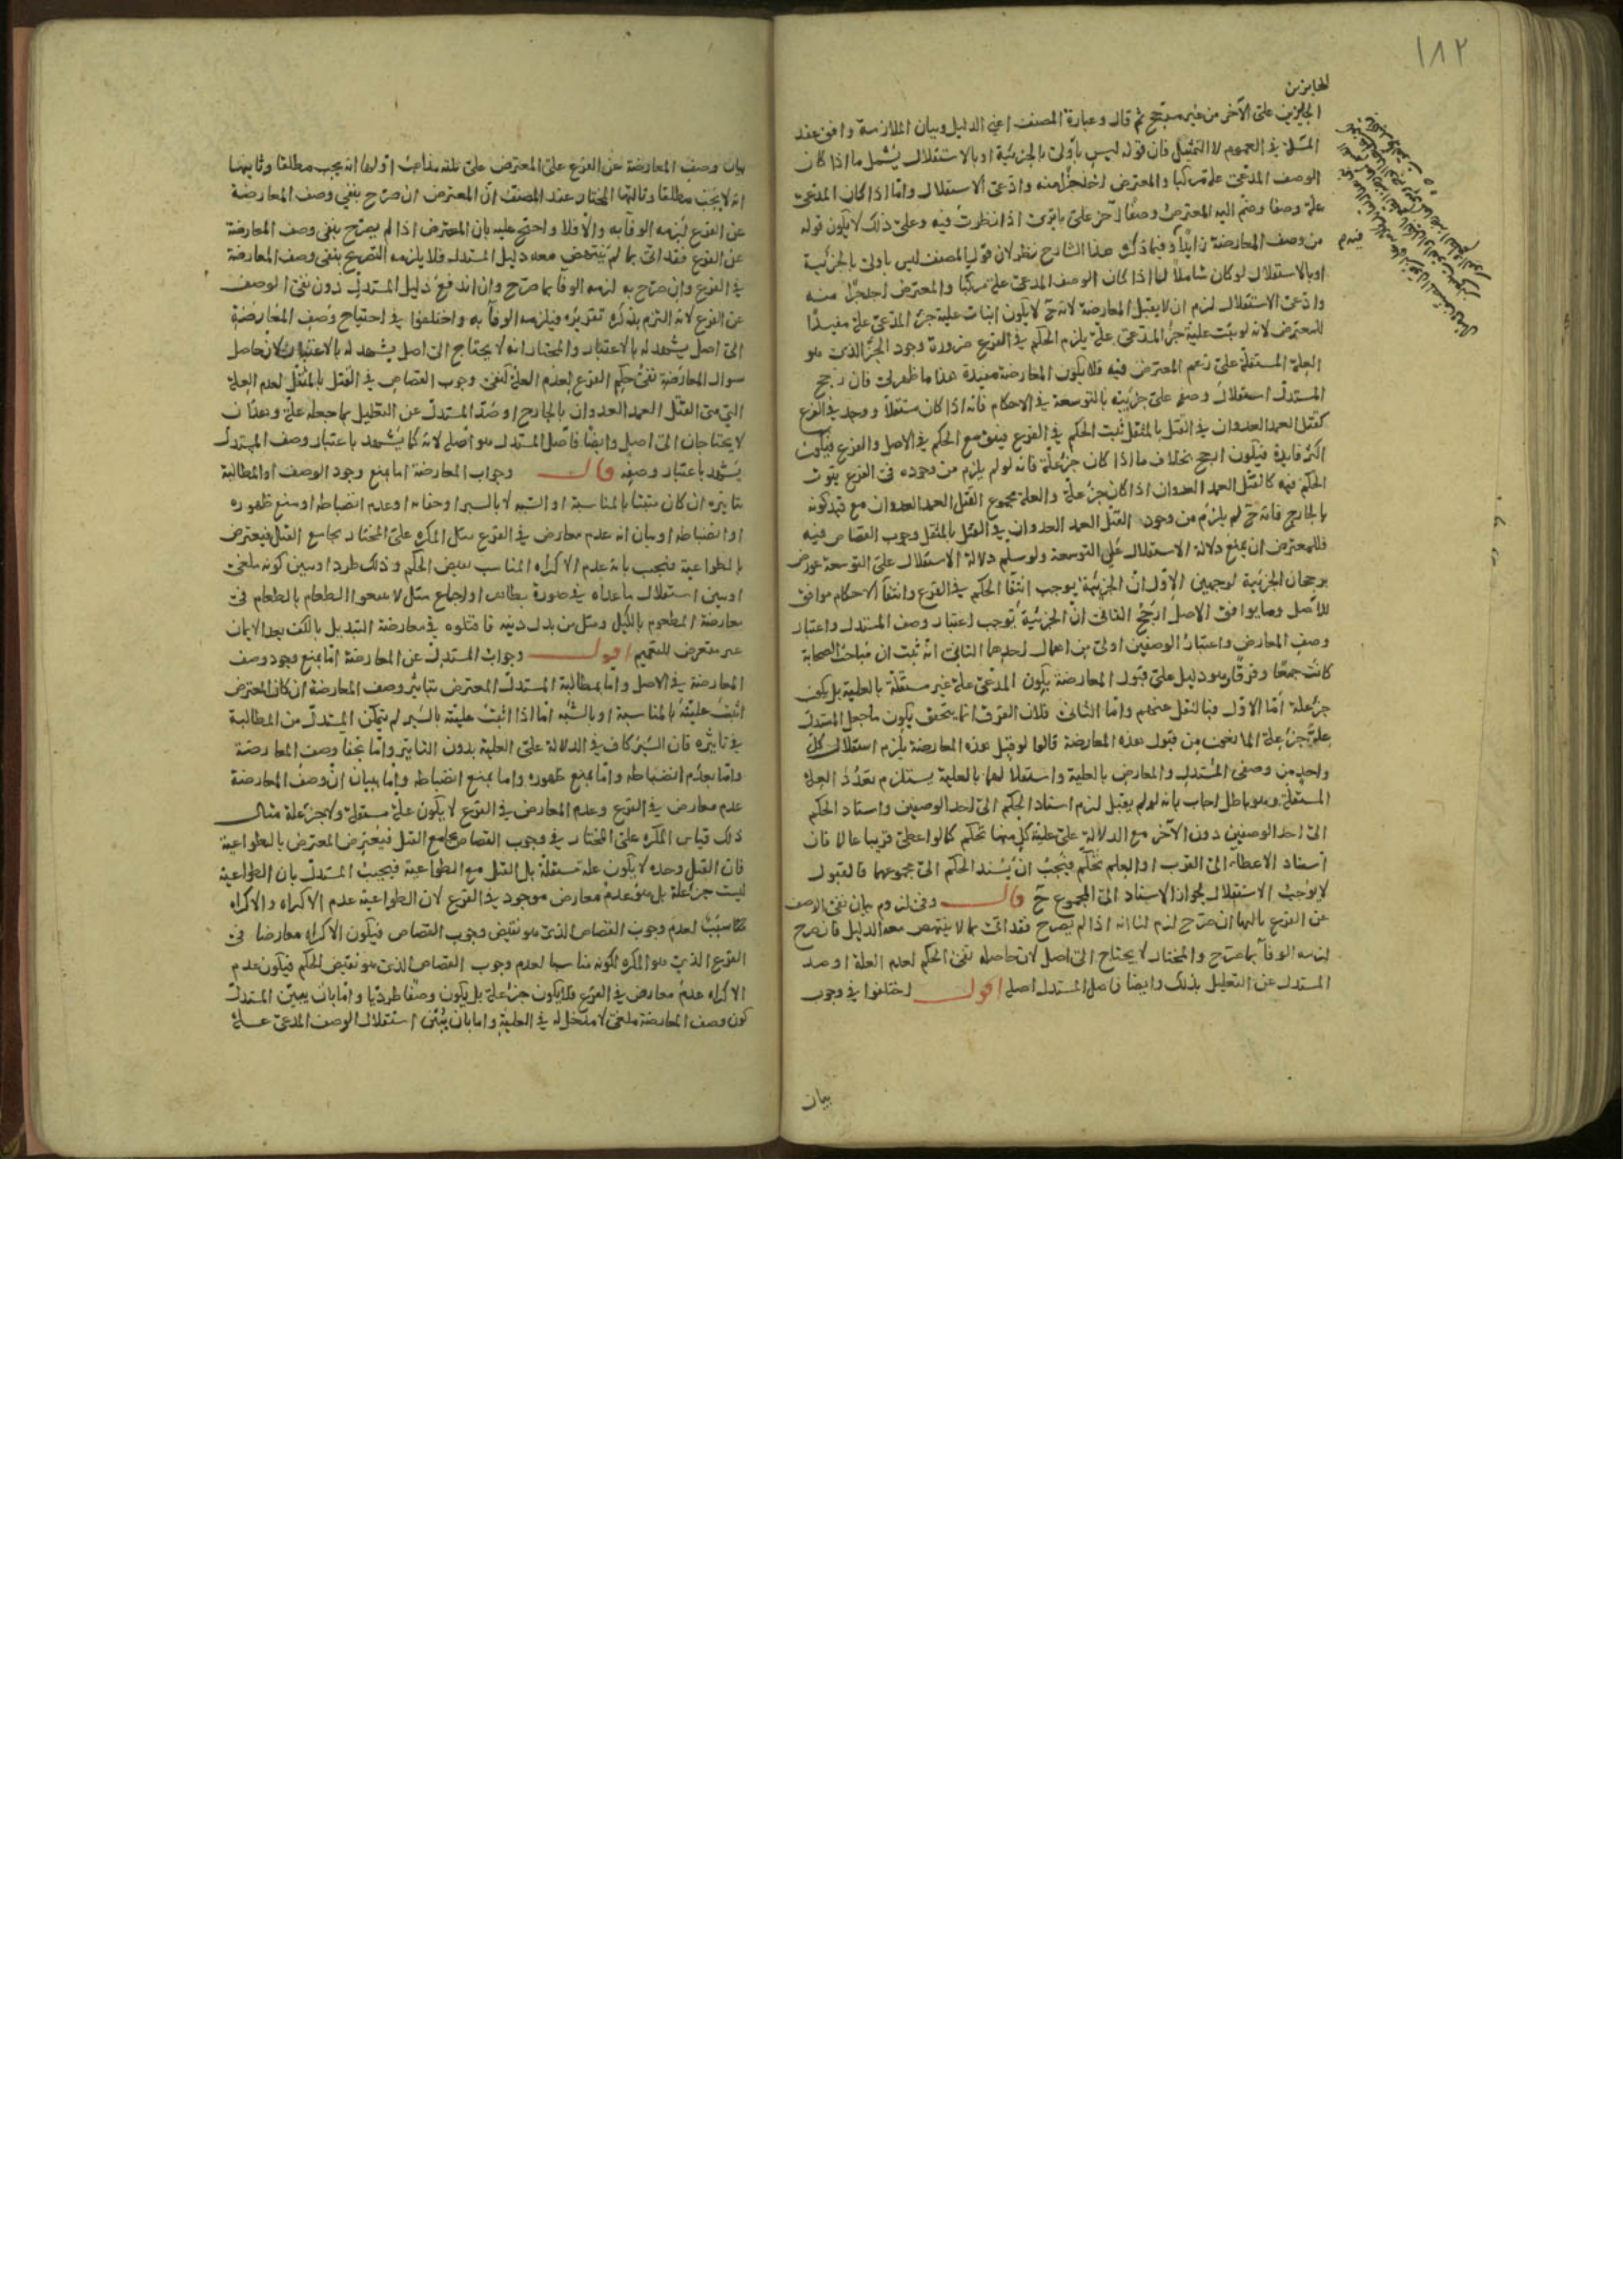 ١٨٢
الجائزين
الجائزين على الآخر من غير مرجح ثم قال وعبارة المصنف اعني الدليل وبيان الملازمة وافق عقد
المسئلة في العموم لا التمثيل فان قوله ليس باولى بالجزئية او بالاستقلال يشمل ما اذا كان
الوصف المدعى علة مركبا والمعترض اخذ جزءا منه وادعى الاستقلال واما اذا كان المدعى
علة وصفا وضم اليه المعترض وصفا آخر على ما ترى اذا نظرت فيه وعلى ذلك لا يكون قوله
من وصف المعارضة زايدا وفيما ذكره هذا الشارح نظر لان قول المصنف ليس باولى بالجزئية
او بالاستقلال لو كان شاملا لما اذا كان الوصف المدعى علة مركبا والمعترض اخذ جزءا منه
وادعى الاستقلال لزم ان لا يقبل المعارضة لانه ح لا يكون اثبات علية جزء المدعى علة مفيدا
للمعترض لانه لو ثبت علية جزء المدعى علة يلزم الحكم في الفرع ضرورة وجود الجزء الذي هو
العلة المستقلة على زعم المعترض فيه فلا يكون المعارضة مفيدة هذا ما ظهر لي فان رجح
المستدل استقلال وصفه على جزئيته بالتوسعة في الاحكام فانه اذا كان مستقلا ووجد في الفرع
كقتل العمد العدوان في القتل بالمثقل ثبت الحكم في الفرع فيتوسع الحكم في الاصل والفرع فيكون
اكثر فايدة فيكون ارجح بخلاف ما اذا كان جزء علة فانه لو لم يلزم من وجوده في الفرع ثبوت
الحكم فيه كالقتل العمد العدوان اذا كان جزء علة والعلة مجموع القتل العمد العدوان مع قيد كونه
بالجارح فانه ح لم يلزم من وجود القتل العمد العدوان في القتل بالمثقل وجوب القصاص فيه
فللمعترض ان يمنع دلالة الاستقلال على التوسعة ولو سلم دلالة الاستقلال على التوسعة عورض
برجحان الجزئية لوجهين الاول ان الجزئية يوجب انتفا الحكم في الفرع وانتفا الاحكام موافق
للاصل وما يوافق الاصل ارجح الثاني ان الجزئية توجب اعتبار وصف المستدل واعتبار
وصف المعارض واعتبار الوصفين اولى من اهمال احدهما الثاني انه ثبت ان مباحث الصحابة
كانت جمعا وفرقا وهو دليل على قبول المعارضة بكون المدعى علة غير مستقلة بالعلية بل يكون
جزء علة اما الاول فبالنقل عنهم واما الثاني فلان الفرق انما يتحقق بكون ما جعل المستدل
علة جزء علة المانعون من قبول هذه المعارضة قالوا لو قبل هذه المعارضة يلزم استقلال كل
واحد من وصفي المستدل والمعارض بالعلية واستقلالهما بالعلية يستلزم تعدد العلة
المستقلة وهو باطل اجاب بانه لو لم يقبل لزم اسناد الحكم الى احد الوصفين واسناد الحكم
الى احد الوصفين دون الآخر مع الدلالة على علية كل منهما تحكم كما لو اعطى قريبا عالما فان
اسناد الاعطاء الى القرب او العلم تحكم فيجب ان يسند الحكم الى مجموعهما فالقبول
لا يوجب الاستقلال لجواز الاسناد الى المجموع ح قال وفي لزوم بيان نفي الوصف
عن الفرع ثالثها ان صرح لزم لنا انه اذا لم يصرح فقد اتى بما لا ينتهض معه الدليل فان صرح
لزمه الوفاء بما صرح والمختار لا يحتاج الى اصل لان حاصله نفي الحكم لعدم العلة او صد
المستدل عن التعليل بذلك وايضا فاصل المستدل اصله اقول اختلفوا في وجوب
بيان
بيان وصف المعارضة عن الفرع على المعترض على ثلثة مذاهب اولها انه يجب مطلقا وثانيها
انه لا يجب مطلقا وثالثها المختار عند المصنف ان المعترض ان صرح بنفي وصف المعارضة
عن الفرع لزمه الوفاء به والا فلا واحتج عليه بان المعترض اذا لم يصرح بنفي وصف المعارضة
عن الفرع فقد اتى بما لم ينتهض معه دليل المستدل فلا يلزمه التصريح بنفي وصف المعارضة
في الفرع وان صرح به لزمه الوفا بما صرح وان اندفع دليل المستدل دون نفي الوصف
عن الفرع لانه التزم بذكره تقريره فيلزمه الوفاء به واختلفوا في احتياج وصف المعارضة
الى اصل يشهد له بالاعتبار والمختار انه لا يحتاج الى اصل يشهد له بالاعتبار لان حاصل
سوال المعارضة نفي حكم الفرع لعدم العلة كنفي وجوب القصاص في القتل بالمثقل لعدم العلة
التي هي القتل العمد العدوان بالجارح او صد المستدل عن التعليل بما جعله علة وهذان
لا يحتاجان الى اصل وايضا فاصل المستدل هو اصله لانه كما يشهد باعتبار وصف المستدل
يشهد باعتبار وصفه قال وجواب المعارضة اما بمنع وجود الوصف او المطالبة
بتاثيره ان كان مثبتا بالمناسبة او الشبه لا بالسبر او خفائه او عدم انضباطه او منع ظهوره
او انضباطه او بيان انه عدم معارض في الفرع مثل المكره على المختار بجامع القتل فيعترض
بالطواعية فيجيب بانه عدم الاكراه المناسب نقيض الحكم وذلك طرد او يبين كونه ملغى
او يبين استقلال ما عداه في صورة بظاهر او اجماع مثل لا تبيعوا الطعام بالطعام في
معارضة المطعوم بالكيل ومثل من بدل دينه فاقتلوه في معارضة التبديل بالكفر بعد الايمان
غير متعرض للتعميم اقول وجواب المستدل عن المعارضة اما بمنع وجود وصف
المعارضة في الاصل واما بمطالبة المستدل المعترض بتاثير وصف المعارضة ان كان المعترض
اثبت عليته بالمناسبة او بالشبه اما اذا اثبت عليته بالسبر لم يتمكن المستدل من المطالبة
في تاثيره فان السبر كاف في الدلالة على العلية بدون التاثير واما بخفا وصف المعارضة
واما بعدم انضباطه واما بمنع ظهوره واما بمنع انضباطه واما ببيان ان وصف المعارضة
عدم معارض في الفرع وعدم المعارض في الفرع لا يكون علة مستقلة ولا جزء علة مثال
ذلك قياس المكره على المختار في وجوب القصاص بجامع القتل فيعترض المعترض بالطواعية
فان القتل وحده لا يكون علة مستقلة بل القتل مع الطواعية فيجيب المستدل بان الطواعية
ليست جزء علة بل هو عدم معارض موجود في الفرع لان الطواعية عدم الاكراه والاكراه
مناسب لعدم وجوب القصاص الذي هو نقيض وجوب القصاص فيكون الاكراه معارضا في
الفرع الذي هو المكره لكونه مناسبا لعدم وجوب القصاص الذي هو نقيض الحكم فيكون عدم
الاكراه عدم معارض في الفرع فلا يكون جزء علة بل يكون وصفا طرديا واما بان يبين المستدل
كون وصف المعارضة ملغى لا مدخل له في العلية واما بان يبين استقلال الوصف المدعى علة